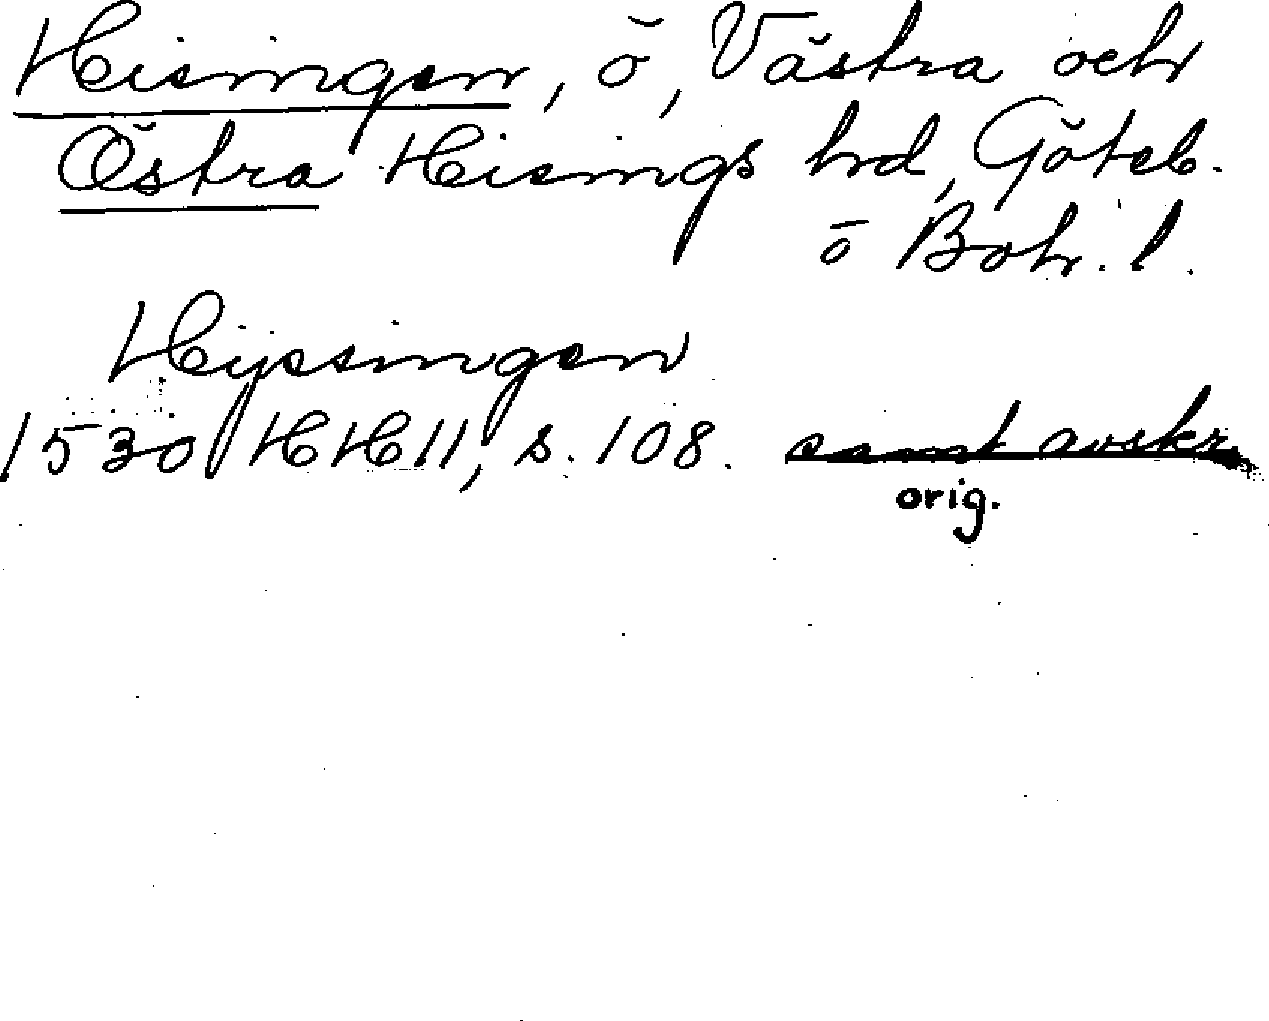 Hisingen, ö, Västra och
Östra Hisings hrd, Göteb.
o Boh. l.
Hijssingen
1530 HH 11, s. 108. samt avskr.
orig.